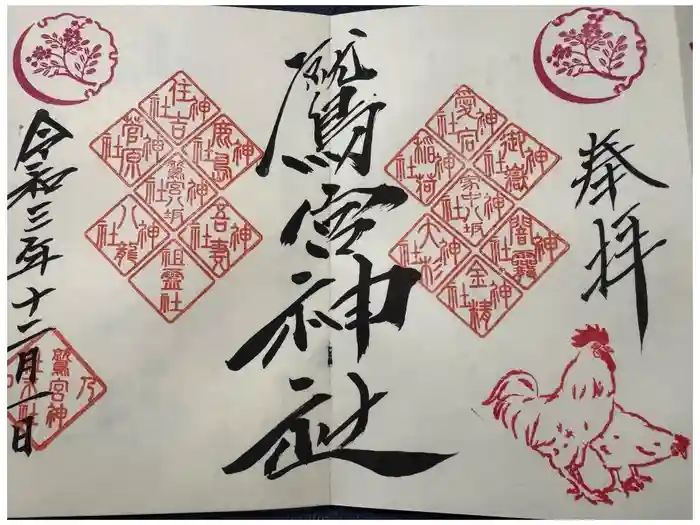 奉拝
鷲宮神社
令和三年十二月一日
愛宕神社
御嶽神社
稲荷神社
家中八坂神社
闇龗神社
大杉神社
金精神社
住吉神社
鹿島神社
菅原神社
鷲宮八坂神社
吾妻神社
八龍神社
祖霊社
鷲宮神社